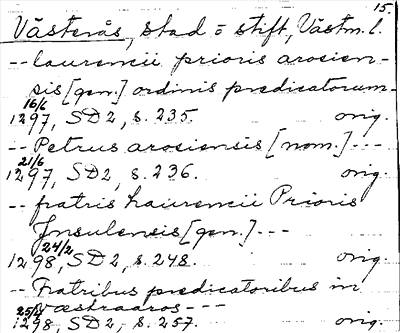 15.
Västerås, stad o stift, Västm. l.
-- laurencii prioris arosien-
sis [gen.] ordinis predicatorum-
16/6
1297, SD 2, s. 235. orig.
-- Petrus arosiensis [nom.] ---
21/6
1297, SD 2, s. 236. orig.
-- fratris haurencii Prioris
Insulensis [gen.] ---
24/2
1298, SD 2, s. 248. orig.
-- Fratribus predicatoribus in
væstraaros ---
1298, SD 2, s. 257. orig.